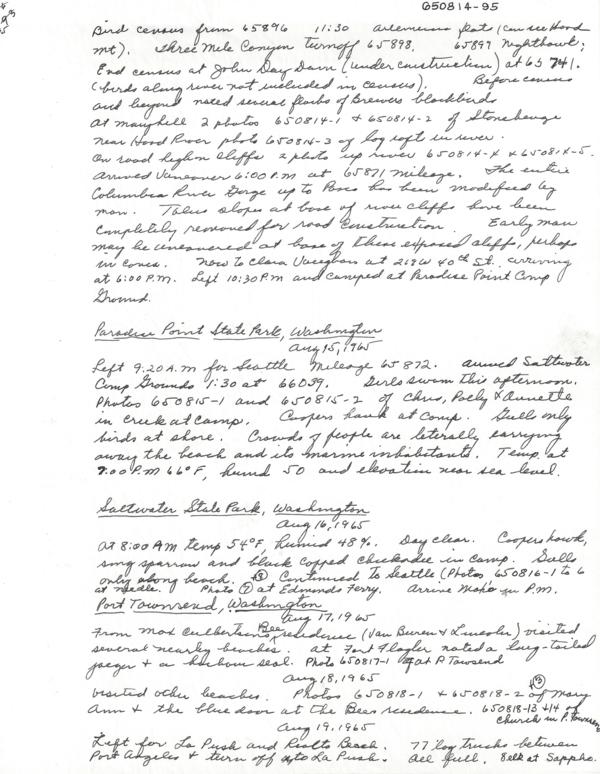 650814-95
Bird census from 65896 11:30 Artemesia flat (can see Hood
Mt). Three Mile Canyon turnoff 65898. 65897 Nighthawk;
End census at John Day Dam (under construction) at 65741.
(birds along river not included in census). Before census
and beyond noted several flocks of Brewers blackbirds
At Maryhill 2 photos 650814-1 & 650814-2 of Stonehenge
Near Hood River photo 650814-3 of log raft in river.
On road high on cliffs 2 photo up river 650814-4 & 650814-5.
Arrived Vancouver 6:00 P.M at 65871 mileage. The entire
Columbia River Gorge up to Pasco has been modified by
man. Talus slopes at base of river cliffs have been
completely removed for road construction. Early man
may be uncovered at base of these exposed cliffs, perhaps
in caves. Now to Clara Vaughan at W 40th St. arriving
at 6:00 P.M. Left 10:30 P.M and camped at Paradise Point Camp
Ground.
Paradise Point State Park, Washington
Aug 15, 1965
Left 9:20 A.M for Seattle Mileage 65872. Arrived Saltwater
Camp Grounds 1:30 at 66039. Girls swam this afternoon.
Photos 650815-1 and 650815-2 of Chris, Rocky & Annette
in creek at camp. Coopers hawk at camp. Gulls only
birds at shore. Crowds of people are leterally carrying
away the beach and its marine inhabitants. Temp. at
9:00 P.M 66°F, humid 50 and elevation near sea level.
Saltwater State Park, Washington
Aug 16, 1965
At 8:00 AM temp 54°F, humid 48%. Day clear. Coopers hawk,
song sparrow and black capped chickadee in camp. Gulls
only along beach. Continued to Seattle (Photos 650816-1 to 6
at needle. Photo 7 at Edmonds Ferry. Arrive in P.M.
Port Townsend, Washington
Aug 17, 1965
From Max Culbertsons Bee residence (Van Buren & Lincoln) visited
several nearby beaches. At Fort Flagler noted a long-tailed
jaeger & a harbour seal. Photo 650817-1 at P. Townsend
Aug 18, 1965
Visited other beaches. Photos 650818-1 & 650818-2 of Mary
Ann & the blue door at the Bees residence. 650818-13 +14 of
church in P. Townsend
Aug 19, 1965
Left for La Push and Rialto Beach. 77 log trucks between
Port Angeles & turn off to La Push. All full. 8 elk at Sappho.